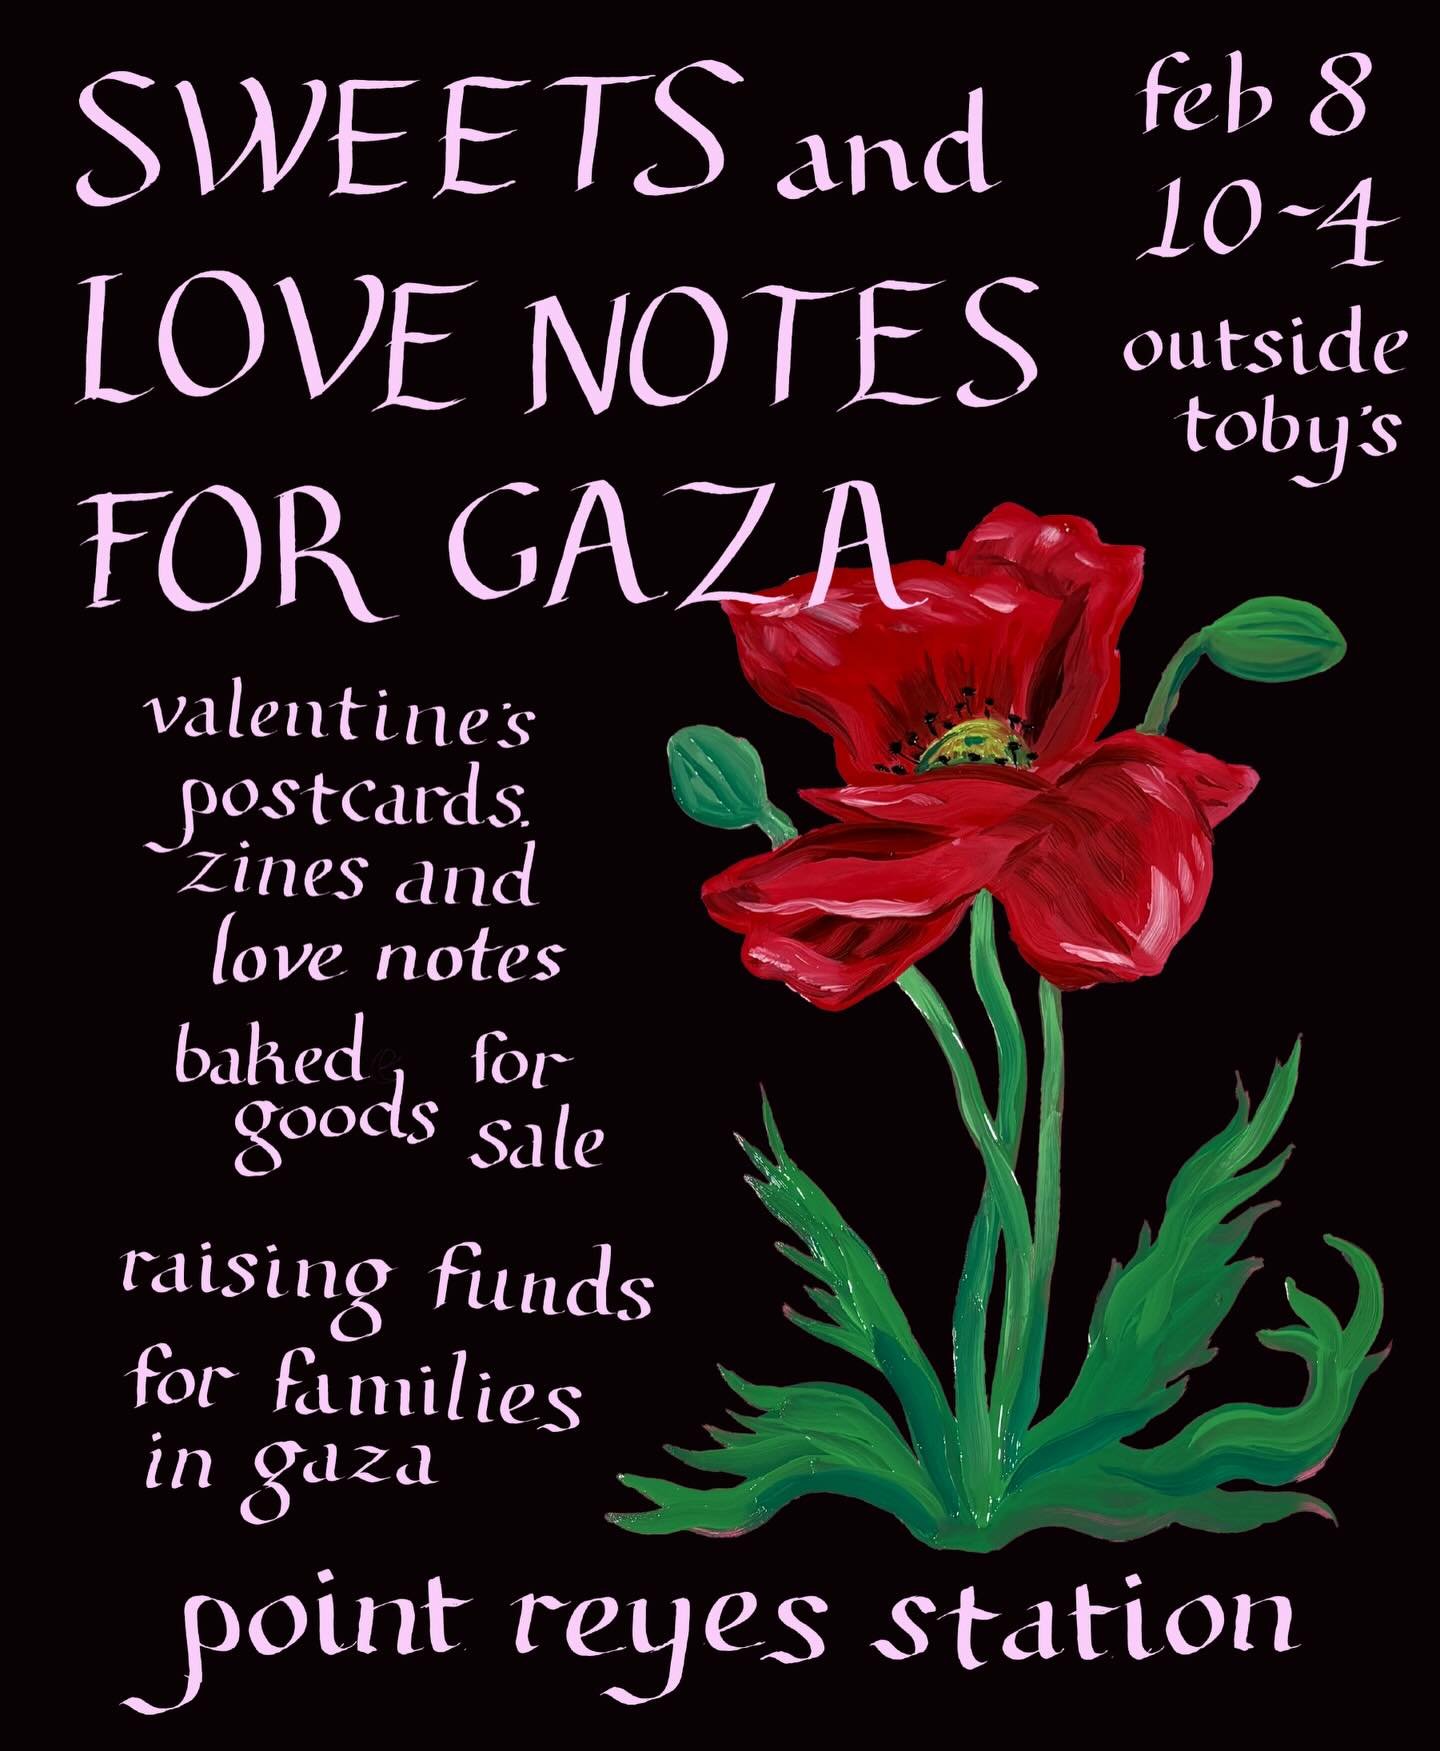 SWEETS and
LOVE NOTES
FOR GAZA
feb 8
10~4
outside
toby's
valentine's
postcards.
zines and
love notes
baked
goods
for
sale
raising funds
for families
in gaza
point reyes station